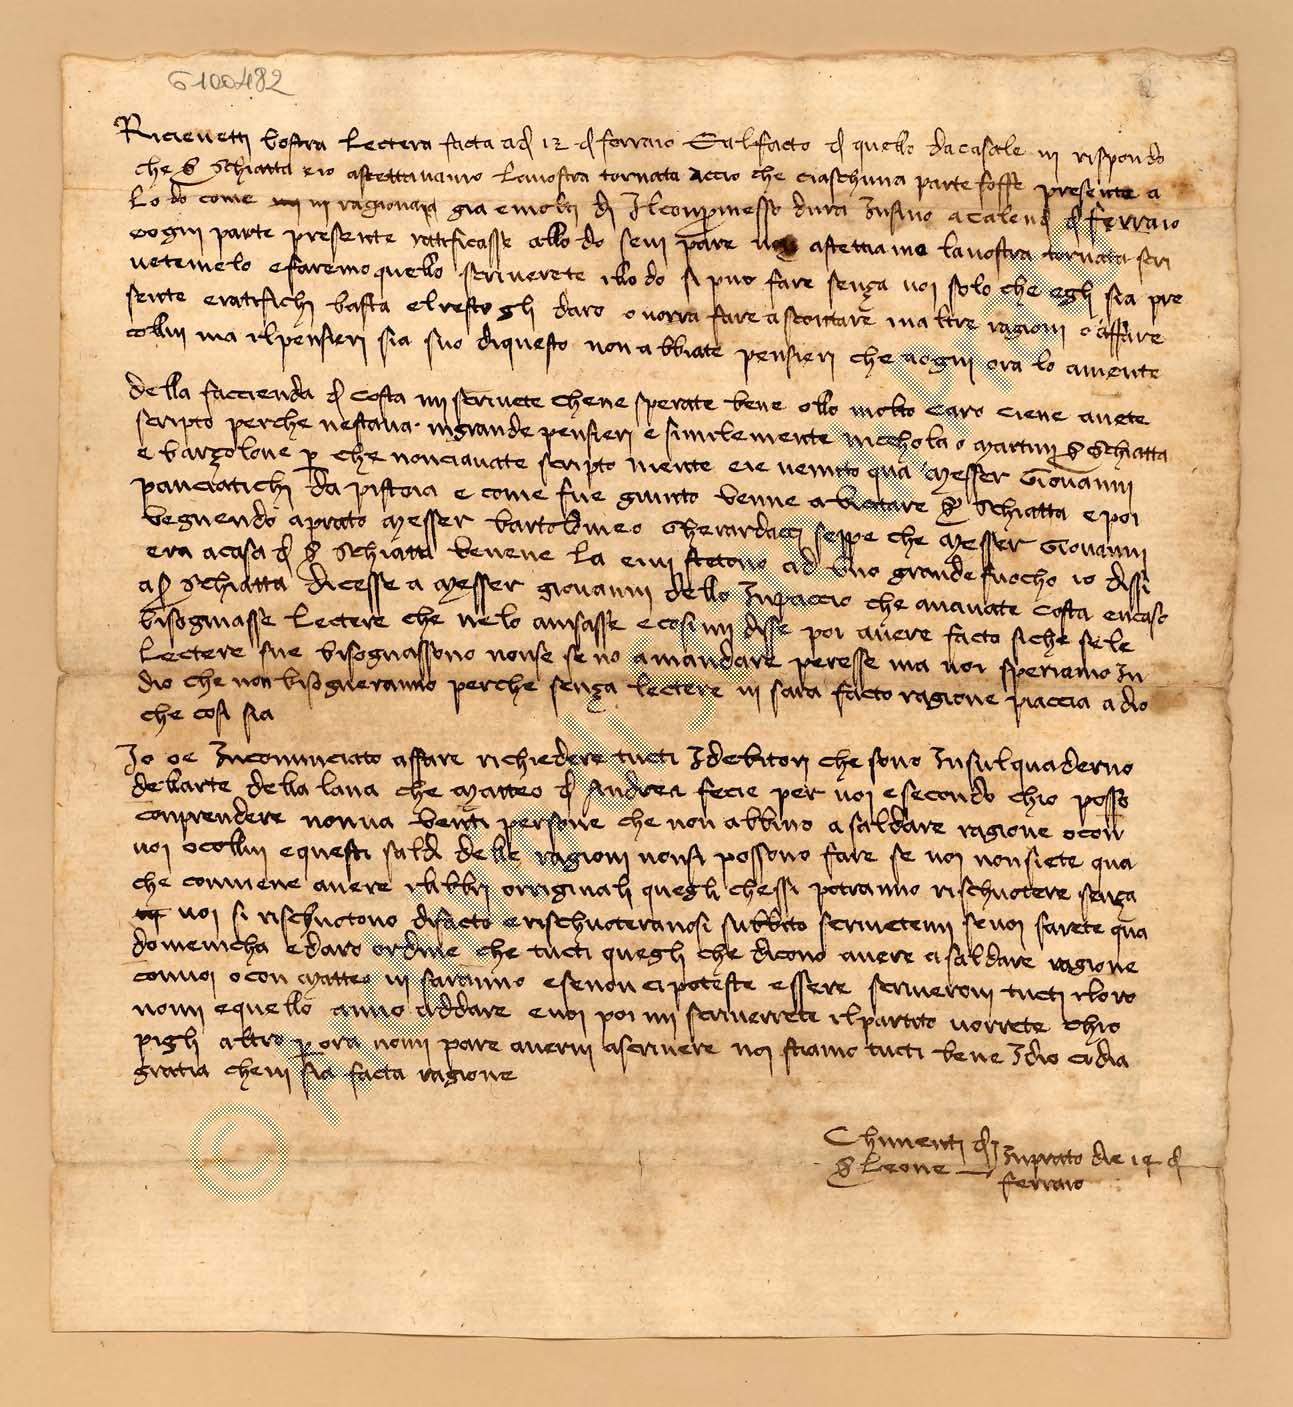 6100482
Ricievetti vostra lectera facta a dì 12 di ferraio e al facto di quello da casale vi rispondo
che ser Schiatta e io aspettavamo la vostra tornata accio che ciaschuna parte fosse presente a
lodo come vi ragionaia gia e molti di Il conpromesso dura Insino a calendi di ferraio
e ogni parte presente ratificasse allodo se vi pare noi aspettiamo la vostra tornata scri
vetemelo e faremo quello scriverete illodo si puo fare sença voi solo che egli sia pre
sente e ratifichi basta el resto gli daro o vorra fare a scontare in altre ragioni o affare
collui ma il pensieri sia suo di questo non abbiate pensieri che a ogni ora lo a mente
della faccienda di Costa mi scrivete che ne sperate bene ollo molto caro ciene avete
scripto perche ne stava in grande pensieri e similemente nicchola o martini ser Schiatta
e barzolone per che non ci avate scripto niente e ie venuto qua Messer Giovanni
panciatichi da pistoia e come fue giunto venne a vicitare ser Schiatta e poi
vegnendo a prato Messer bartolomeo Gherardacci seppe che Messer Giovanni
era a casa di ser Schiatta venene la e ivi stetono ad uno grande fuocho io dissi
a ser Schiatta dicesse a Messer giovanni dello Inpaccio che avavate Costa e in caso
bisognasse lectere che ne lo avisasse e cosi mi disse poi avere facto siche se le
lectere sue bisognassono non se se no a mandare per esse ma noi speriamo In
dio che non bisogneranno perche sença lectere vi sara facto ragione piaccia a dio
che cosi sia
Io oe Incominciato affare richiedere tucti I debitori che sono In sul quaderno
dell arte della lana che Matteo di Andrea fecie per voi e secondo chio posso
conprendere non n a venti persone che non abbino a saldare ragione o con
voi o collui e questi saldi delle ragioni non si possono fare se voi non siete qua
che conviene avere i libbri originali quegli chessi potranno rischuotere sença
voi si rischuotono di facto e rischuoteranosi subbito scrivetemi se voi sarete qua
domenicha e daro ordine che tucti quegli che dicono avere a saldare ragione
con voi o con Matteo vi saranno e se non ci poteste essere scriverovi tucti i loro
nomi e quello anno addare e voi poi mi scriverrete il partito vorrete chio
pigli altro per ora non mi pare avervi a scrivere noi stiamo tucti bene Idio ci dia
gratia che vi sia facta ragione
Chimenti di
ser Leone
In prato die 14 di
ferraio